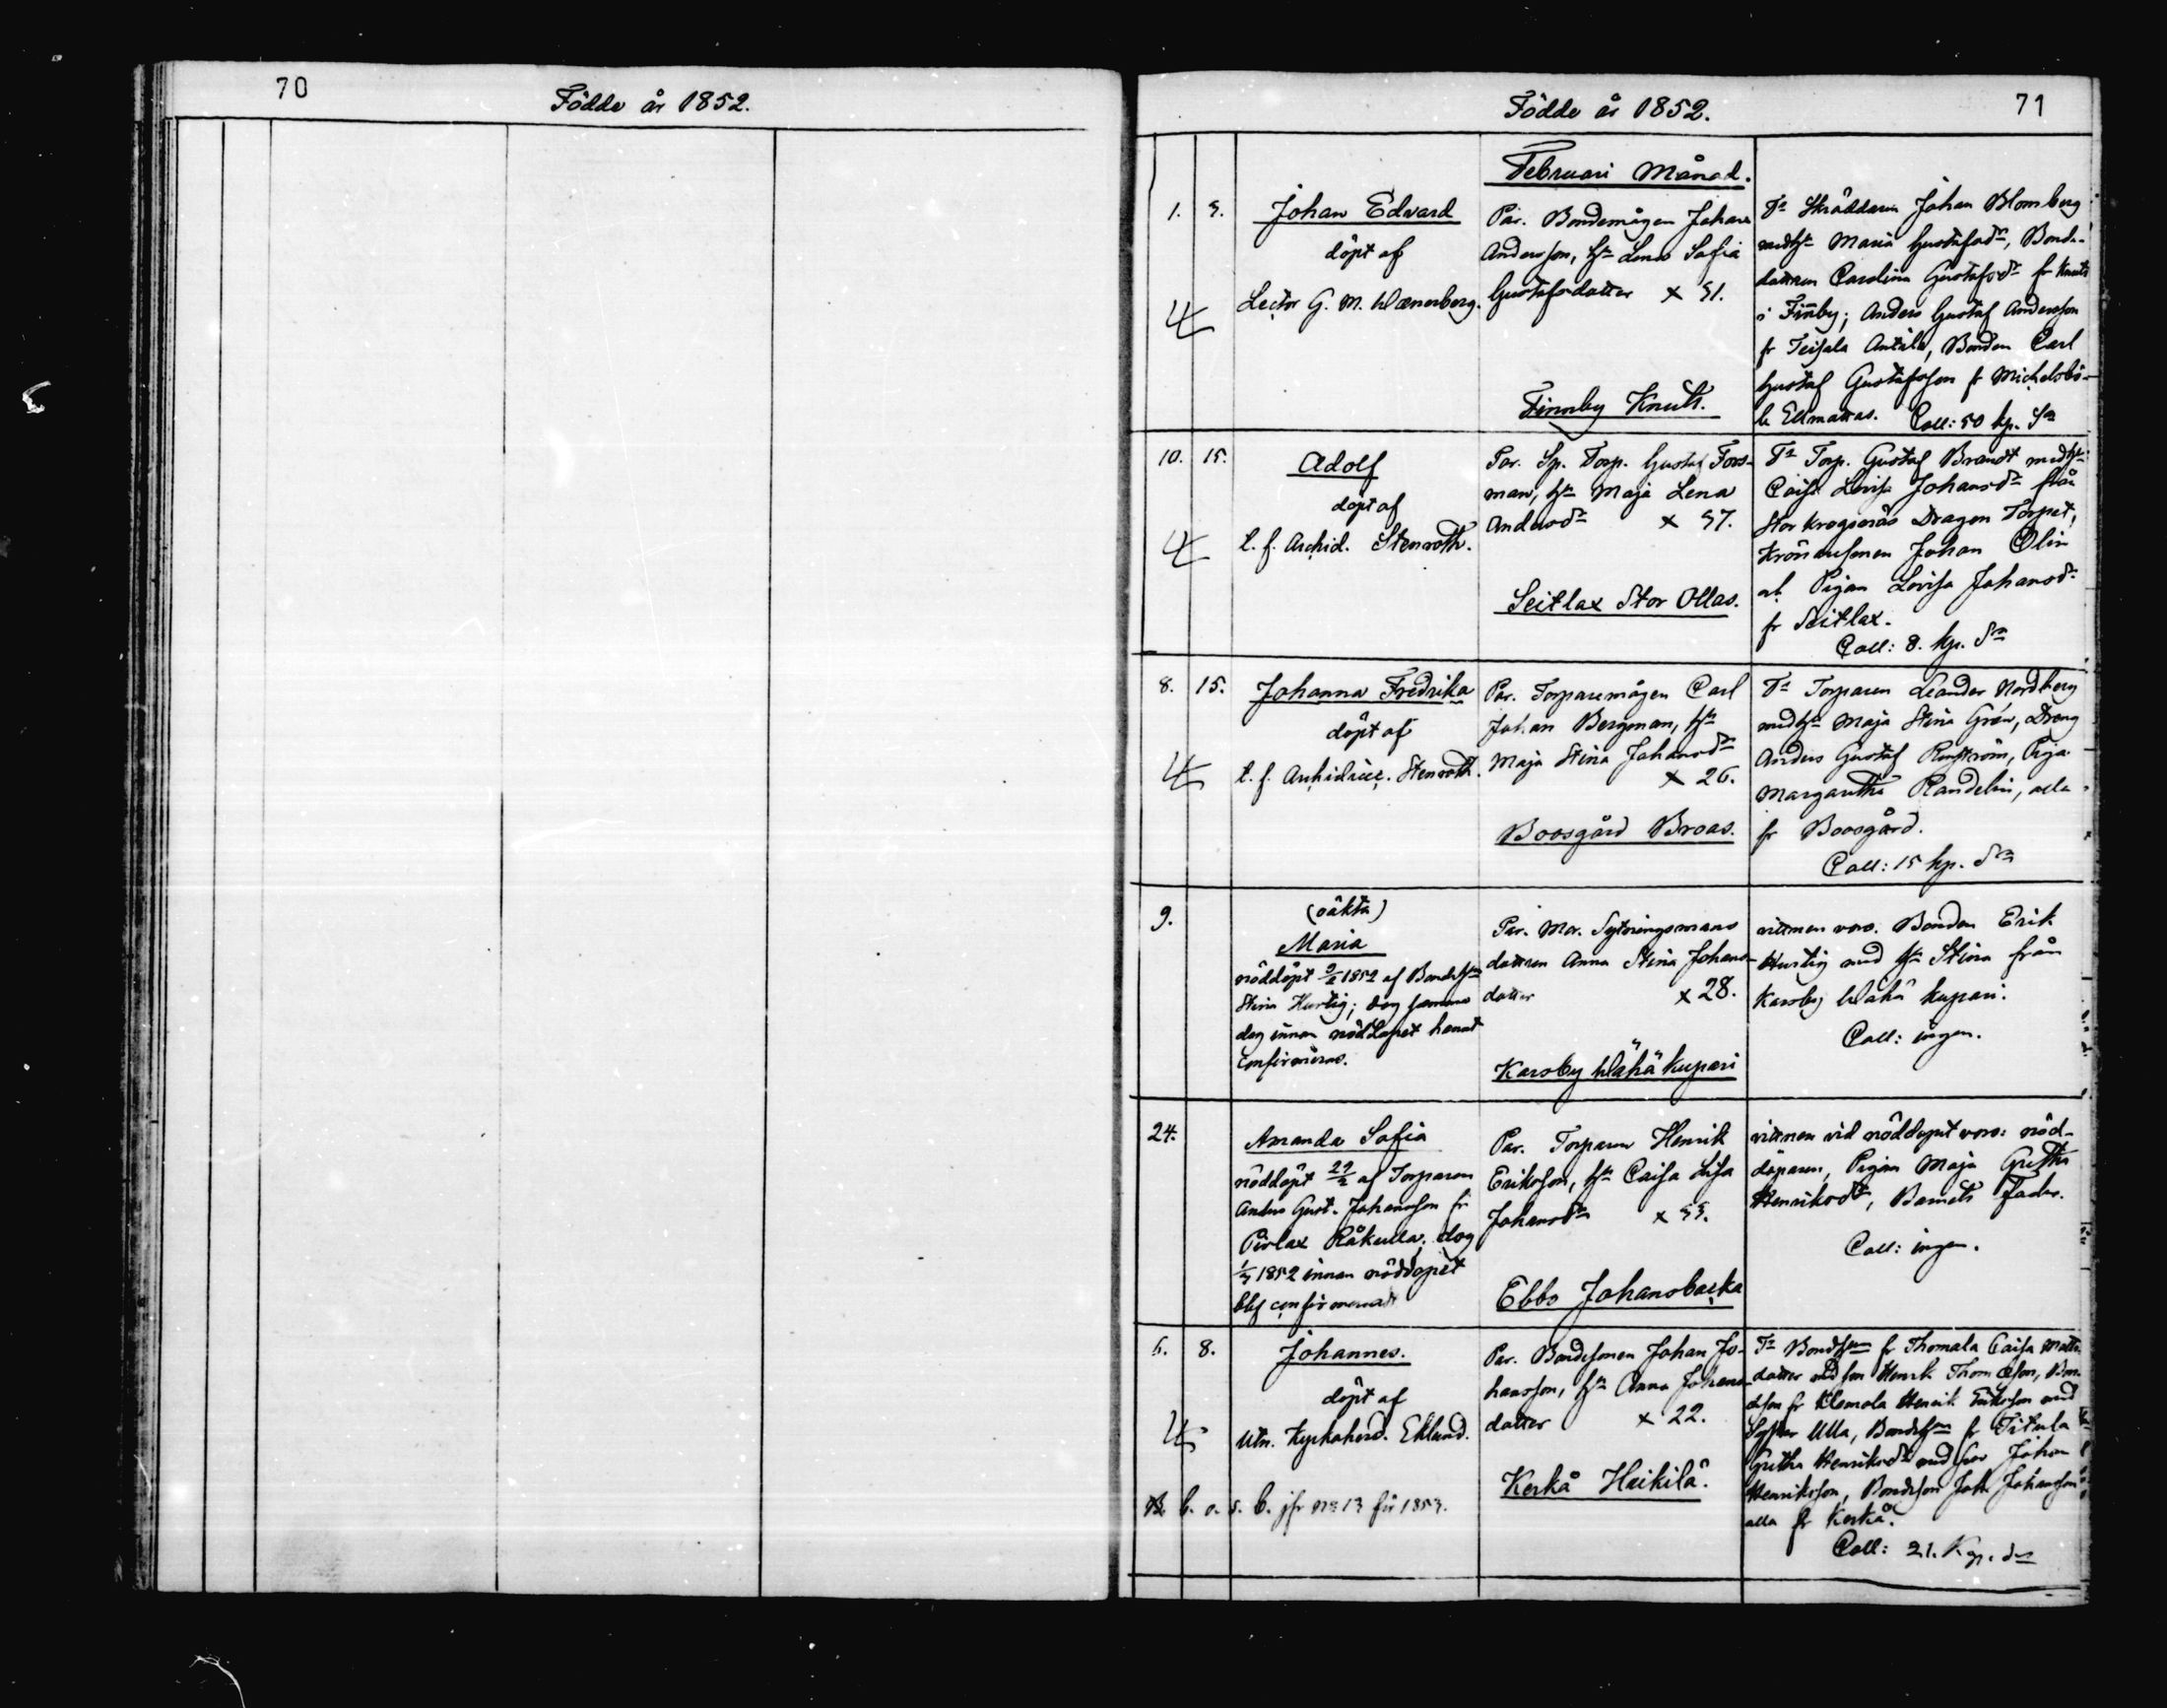 70
Födde år 1852.
Födde år 1852.
71
Februari Månad.
1. 3.
Johan Edvard
döpt af
Lector G. M. Wænerberg.
Par. Bondemågen Johan
Andersson, hn Lena Sofia
Gustafsdatter × 31.
Finnby Knuts.
Ts Skräddarn Johan Blomberg
medhn Maria Gustafsdr, Bonde-
dattren Carolina Gustafsdr fr Knuts
i Finnby; Anders Gustaf Andersson
fr Teisala Anttila, Bonden Carl
Gustaf Gustafsson fr Michelsbö-
le Ellmattas. Coll: 50 kp. Sr
10. 15.
Adolf
döpt af
t. f. Archid. Stenroth.
Par. Sp. Torp. Gustaf Fors-
man, hn Maja Lena
Andersdr × 37.
Seitlax Stor Ollas.
Ts Torp. Gustaf Brandt medhn
Caisa Lovisa Johansdr från
Stor Krogsnäs Dragon Torpet,
Johan Olin
o. Pigan Lovisa Johansdr
fr Seitlax.
Coll: 8. kp. Sr
8. 15.
Johanna Fredrika
döpt af
t. f. Archidiac. Stenroth.
Par. Torparemågen Carl
Johan Bergman, hn
Maja Stina Johansdr
× 26.
Boosgård Broas.
Ts Torparen Leander Nordberg
medhn Maja Stina Grön, Dräng
Anders Gustaf Renström, Piga
Margaretha Randelin, alla
fr Boosgård.
Coll: 15 kp. Sr
9.
(oäkta)
Maria
nöddöpt 9/2 1852 af Bondehn
Stina Hurtig; dog samma
dag innan nöddopet hunnit
confirmeras.
Par. Mor. Sytningsmans
dattren Anna Stina Johans-
datter × 28.
Karsby Wähä kupari
vittnen voro. Bonden Erik
Hurtig med hn Stina från
Karsby Wähä kupari.
Coll: ingen.
24.
Amanda Sofia
nöddöpt 29/2 af Torparen
Anders Gust. Johansson fr
Pirlax Råkulla; dog
1/3 1852 innan nöddopet
blef confirmeradt
Par. Torparen Henrik
Eriksson, hn Caisa Lisa
Johansdr × 33.
Ebbo Johansbacka
vittnen vid nöddopet voro: nöd-
döparen, Pigan Maja Gretha
Henriksdr, Barnets Fader.
Coll: ingen.
6. 8.
Johannes.
döpt af
Utn. Kyrkoherd. Eklund.
N. b. o. s. b. jfr No 13 för 1853.
Par. Bondesonen Johan Jo-
hansson, hn Anna Johans-
datter × 22.
Kerkå Heikilä.
Ts Bondehn fr Thomala Caisa Matts-
datter med son Henrik Thomasson, Bon-
deson fr Klemola Henrik Eriksson med
Syster Ulla, Bondehn fr Titula
Gretha Henriksdr med son Johan
Henriksson, Bondeson Joh. Johansson
alla fr Kerkå.
Coll: 21. Kop. Sr